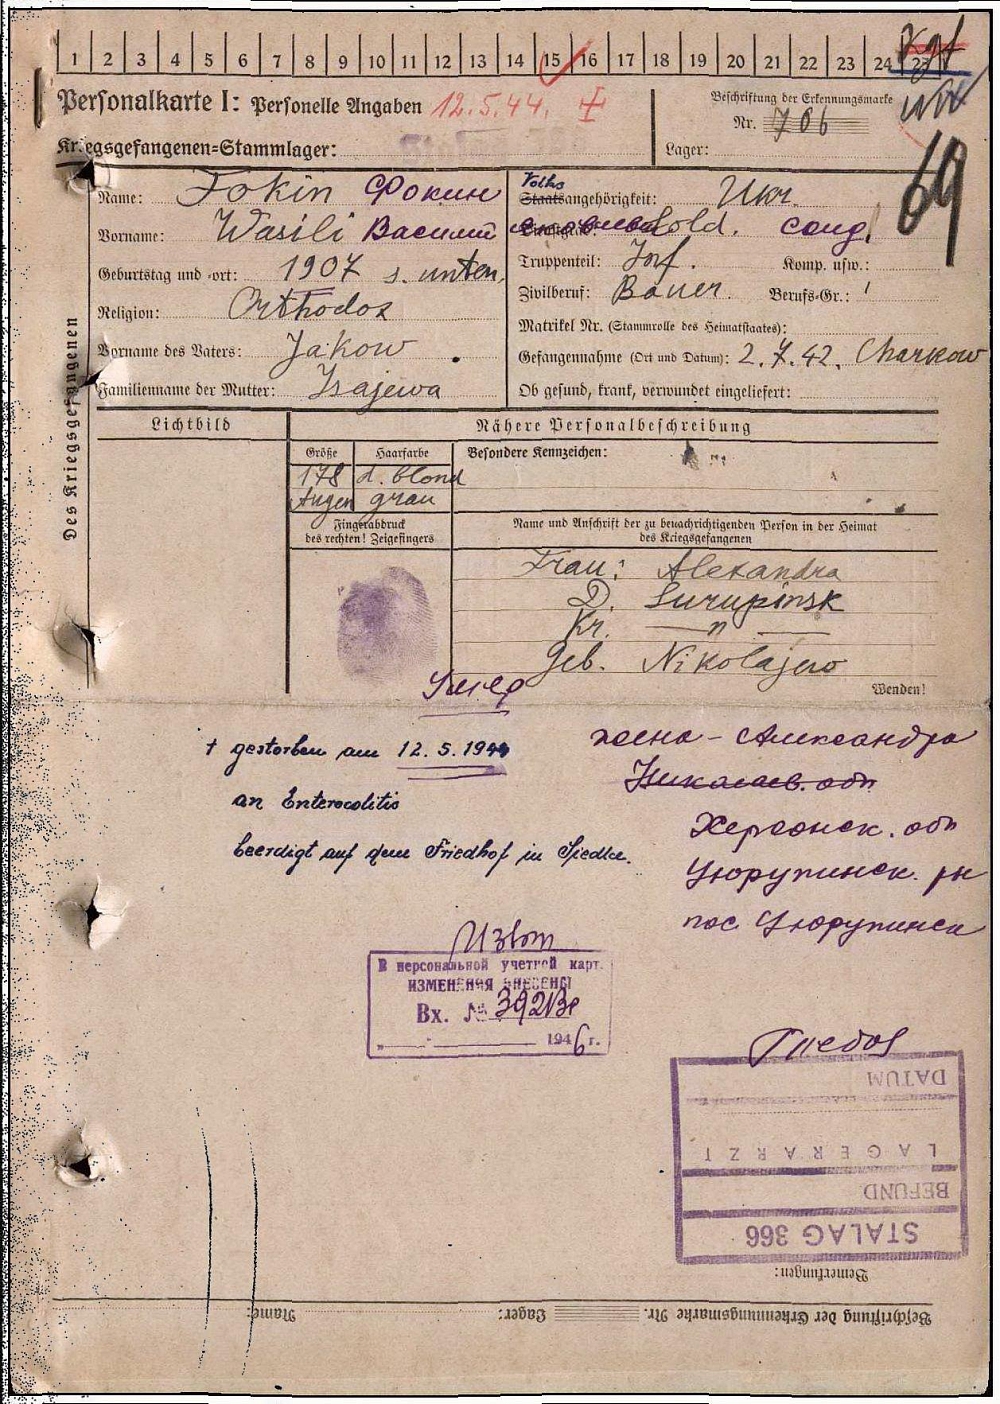 1 2 3 4 5 6 7 8 9 10 11 12 13 14 15 16 17 18 19 20 21 22 23 24 25
Personalkarte I: Personelle Angaben 12.5.44.
Beschriftung der Erkennungsmarke
Nr. 706
Kriegsgefangenen=Stammlager:
Lager:
69
Des Kriegsgefangenen
Name: Fokin Фокин
Vorname: Wasili Василий
Geburtstag und =ort: 1907 s. unten.
Religion: Orthodox
Vorname des Vaters: Jakow
Familienname der Mutter: Isajewa
Volks
Staatsangehörigkeit: Ukr.
Dienstgrad: Sold. солд.
Truppenteil: Inf. Komp. usw.:
Zivilberuf: Bauer. Berufs-Gr.:
Matrikel Nr. (Stammrolle des Heimatstaates):
Gefangennahme (Ort und Datum): 2.7.42. Charkow
Ob gesund, krank, verwundet eingeliefert:
Lichtbild
Nähere Personalbeschreibung
Größe Haarfarbe Besondere Kennzeichen:
178 d. blond
Augen grau
Fingerabdruck
des rechten! Zeigefingers
Name und Anschrift der zu benachrichtigenden Person in der Heimat
des Kriegsgefangenen
Frau: Alexandra
D. Surupinsk
Kr. — " —
Geb. Nikolajew
Wenden!
Умер
† gestorben am 12. 5. 1944
an Enterocolitis
beerdigt auf dem Friedhof in Siedlce.
жена - Александра
Николаев. обл
Херсонск. обл
Цюрупинск. рн
пос. Цюрупинск
В персональной учетной карт.
ИЗМЕНЕНИЯ ВНЕСЕНЫ
Вх. № 392
1946 г.
DATUM
LAGERARZT
BEFUND
STALAG 366
Bemerkungen:
Beschriftung der Erkennungsmarke Nr. Lager: Name: